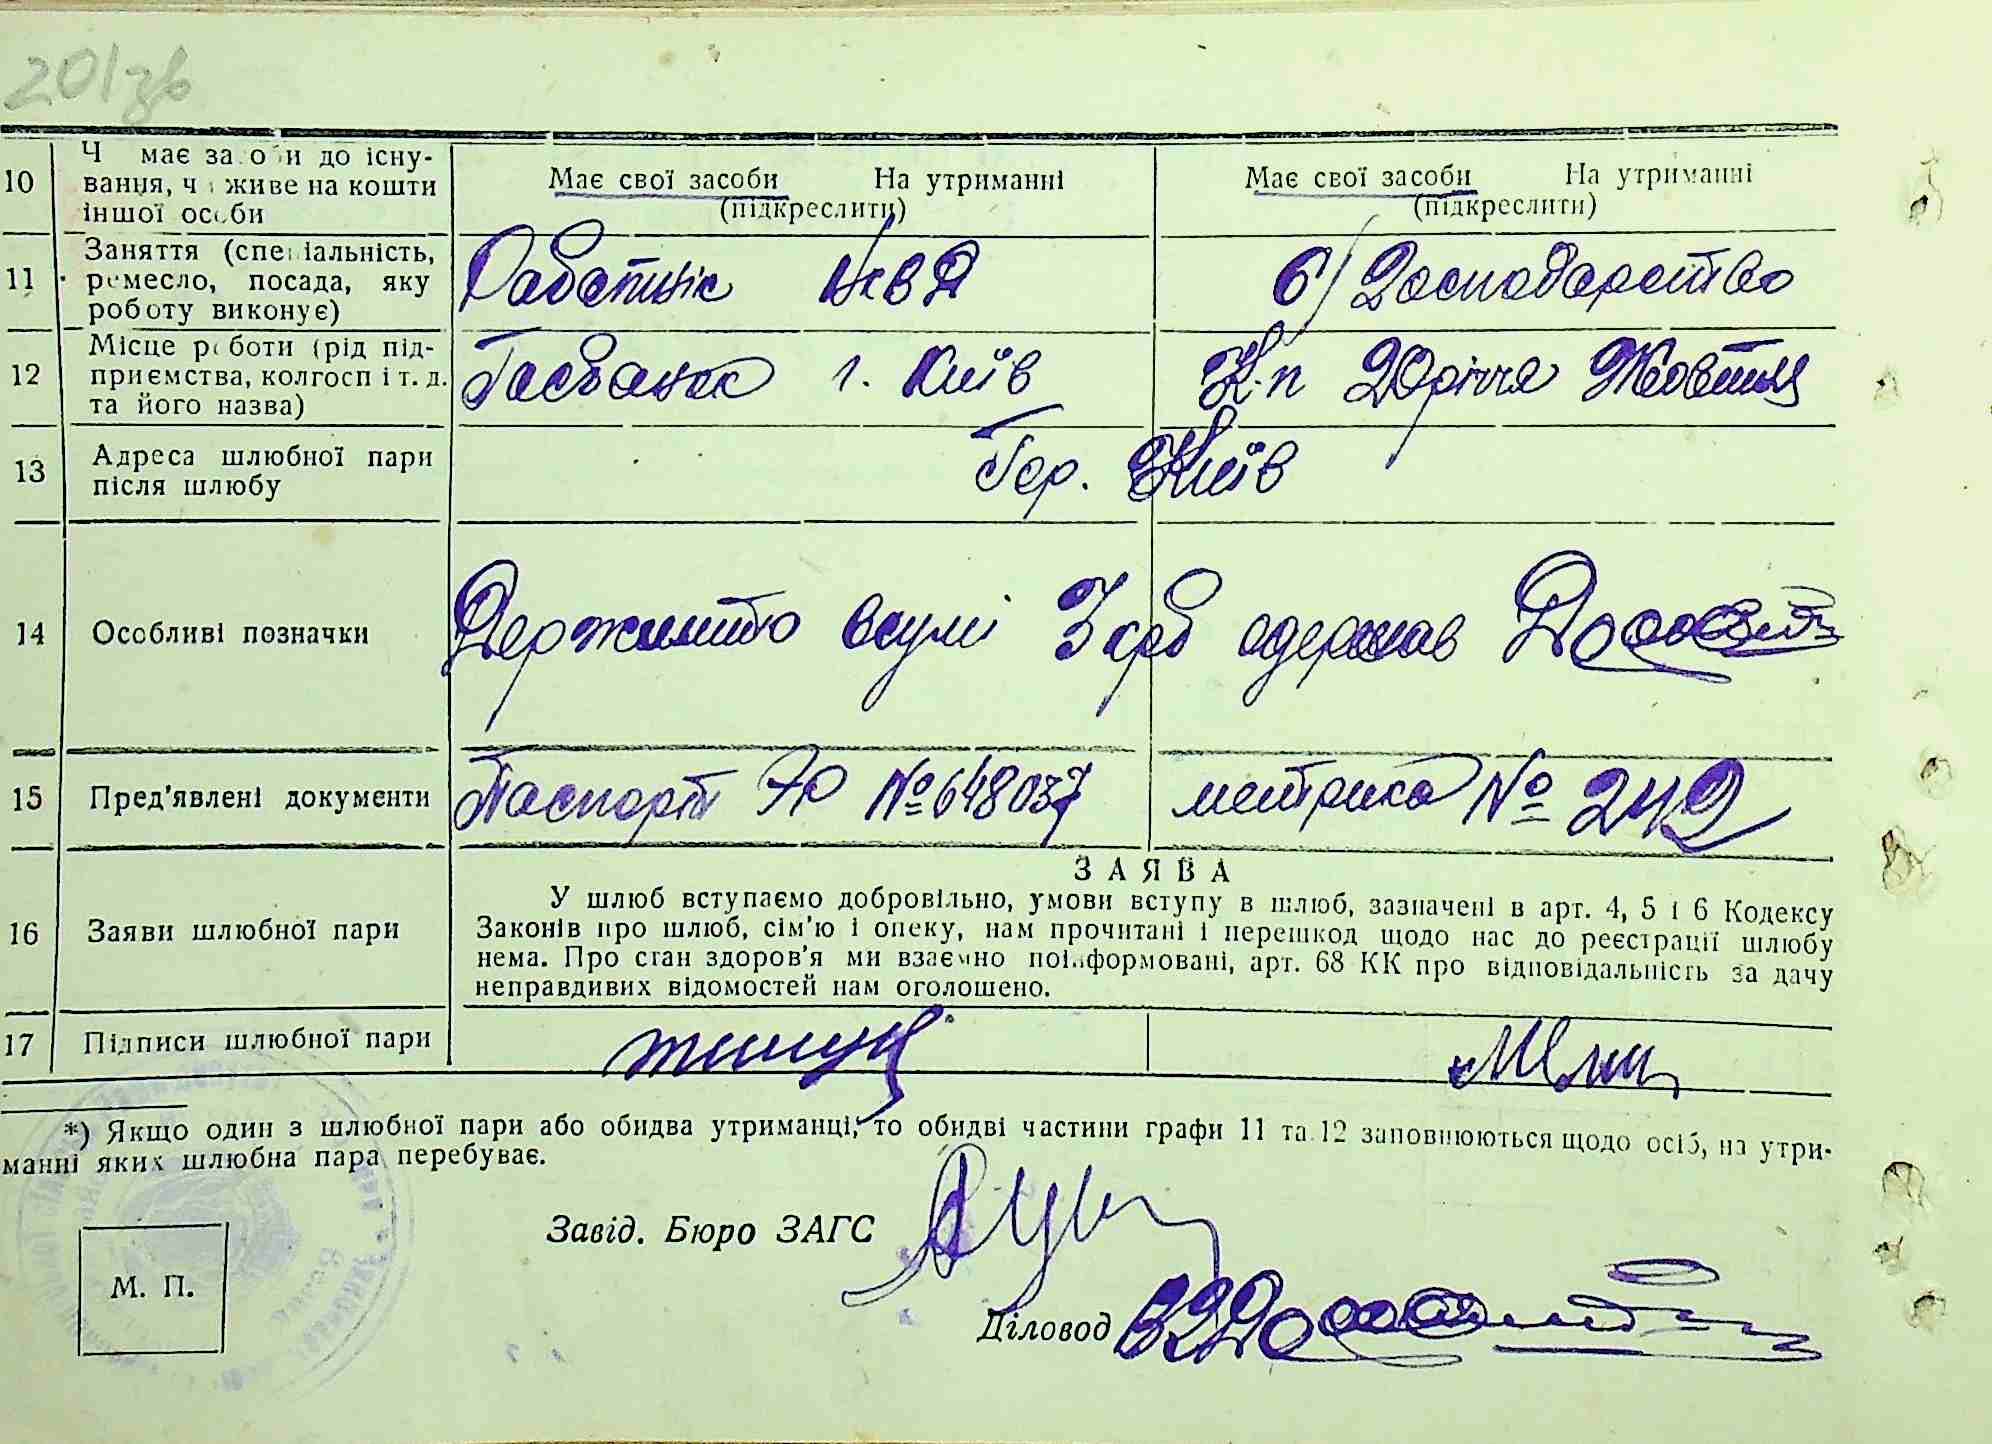 201зв
10 Ч має за о и до існу-
вання, ч живе на кошти
іншої особи
Має свої засоби На утриманні
(підкреслити)
Має свої засоби На утриманні
(підкреслити)
11 Заняття (спеціальність,
ремесло, посада, яку
роботу виконує)
Работнік НКВД
б/ Господарство
12 Місце роботи (рід під-
приємства, колгосп і т. д.
та його назва)
Госбанк г. Київ
К-п 20річчя Жовтня
13 Адреса шлюбної пари
після шлюбу
Гор. Київ
14 Особливі позначки
Держмито всумі 3 крб одержав
15 Пред'явлені документи
Паспорт ЭЮ № 648037
метрика № 242
16 Заяви шлюбної пари
ЗАЯВА
У шлюб вступаємо добровільно, умови вступу в шлюб, зазначені в арт. 4, 5 і 6 Кодексу
Законів про шлюб, сім'ю і опеку, нам прочитані і перешкод щодо нас до реєстрації шлюбу
нема. Про стан здоров'я ми взаємно поінформовані, арт. 68 КК про відповідальність за дачу
неправдивих відомостей нам оголошено.
17 Підписи шлюбної пари
*) Якщо один з шлюбної пари або обидва утриманці, то обидві частини графи 11 та 12 заповнюються щодо осіб, на утри-
манні яких шлюбна пара перебуває.
Завід. Бюро ЗАГС
М. П.
Діловод